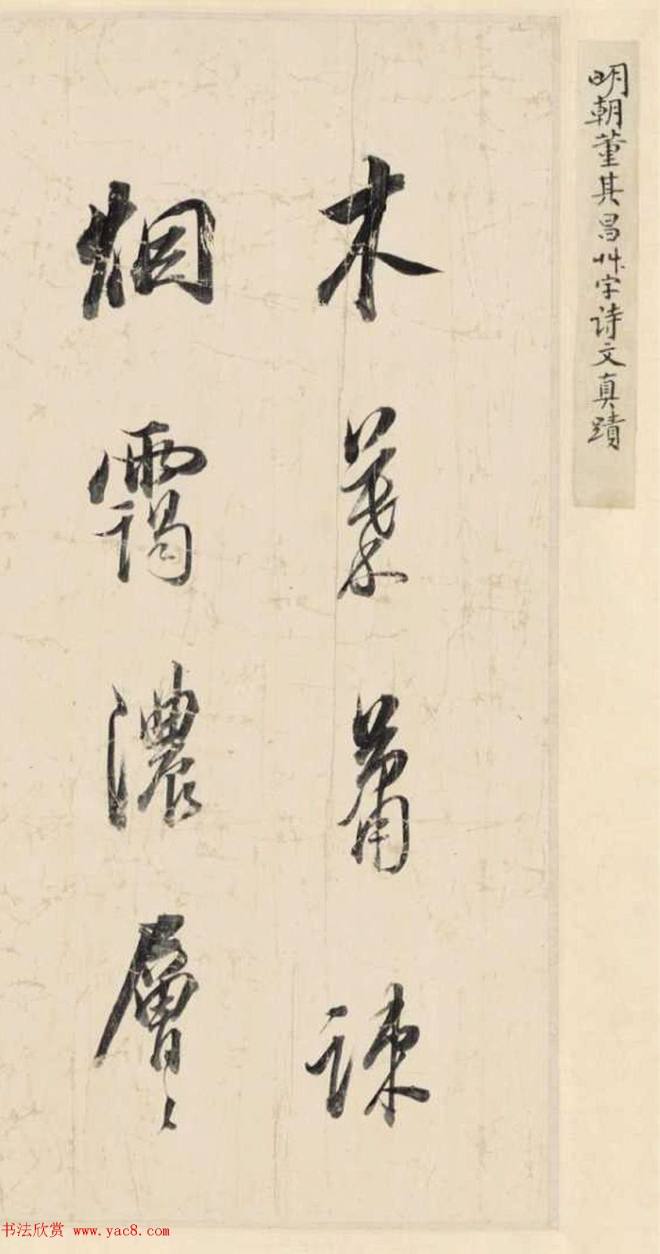 明朝董其昌艸字诗文真蹟
木葉蕭疎
烟靄濃層〻
书法欣赏 www.yac8.com